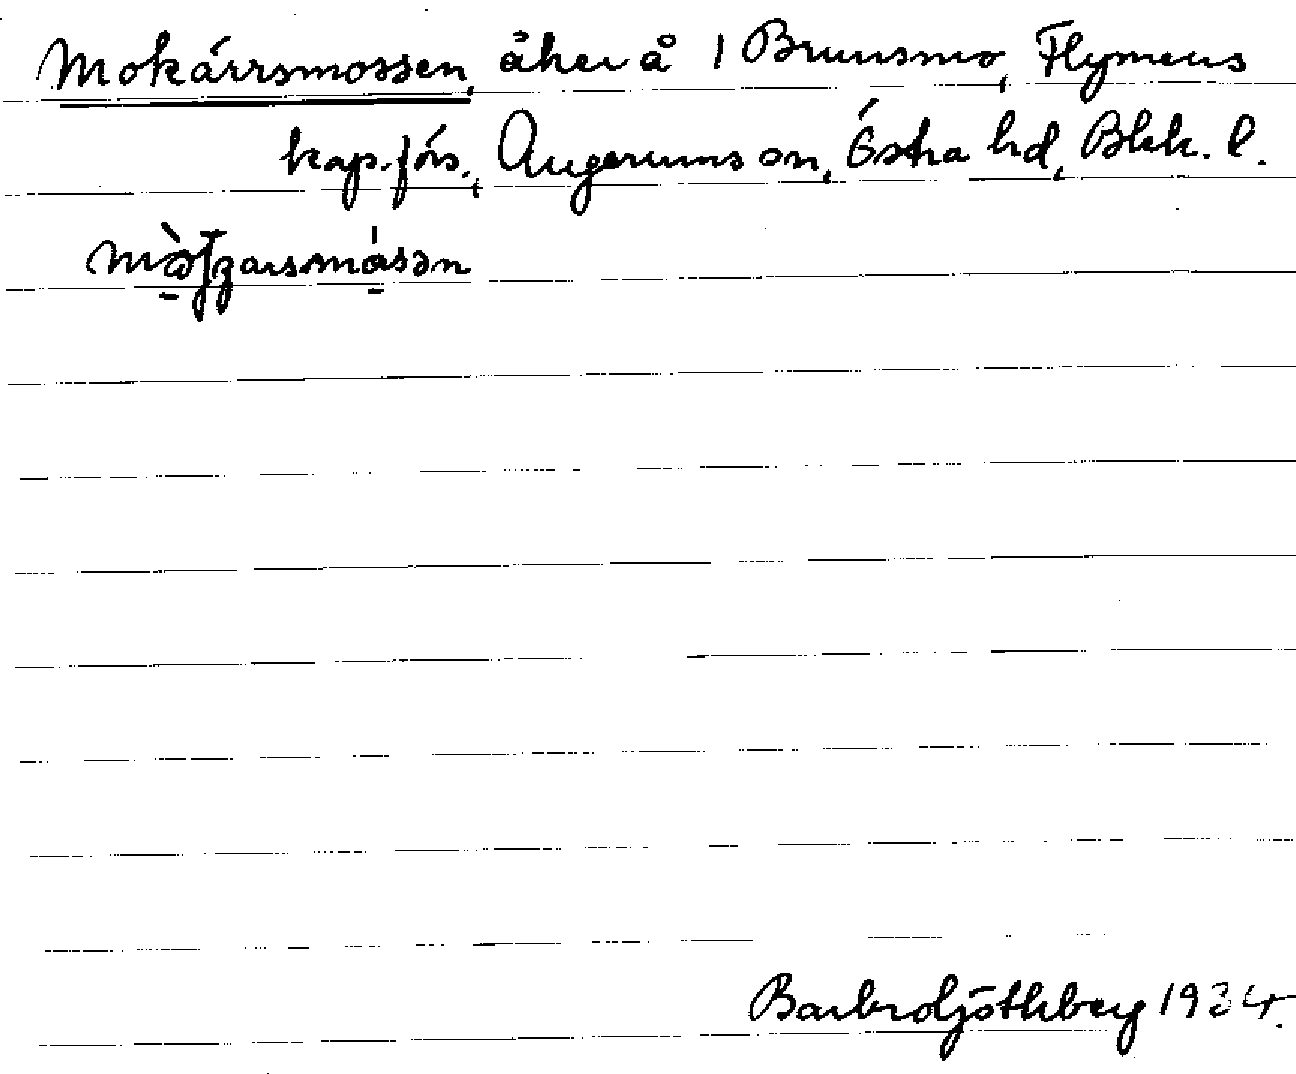 Mokärrsmossen, åker å 1 Brunsmo, Flymens
kap.förs., Augerums sn, Östra hd, Blek. l.
Barbro Ljöthberg 1934.